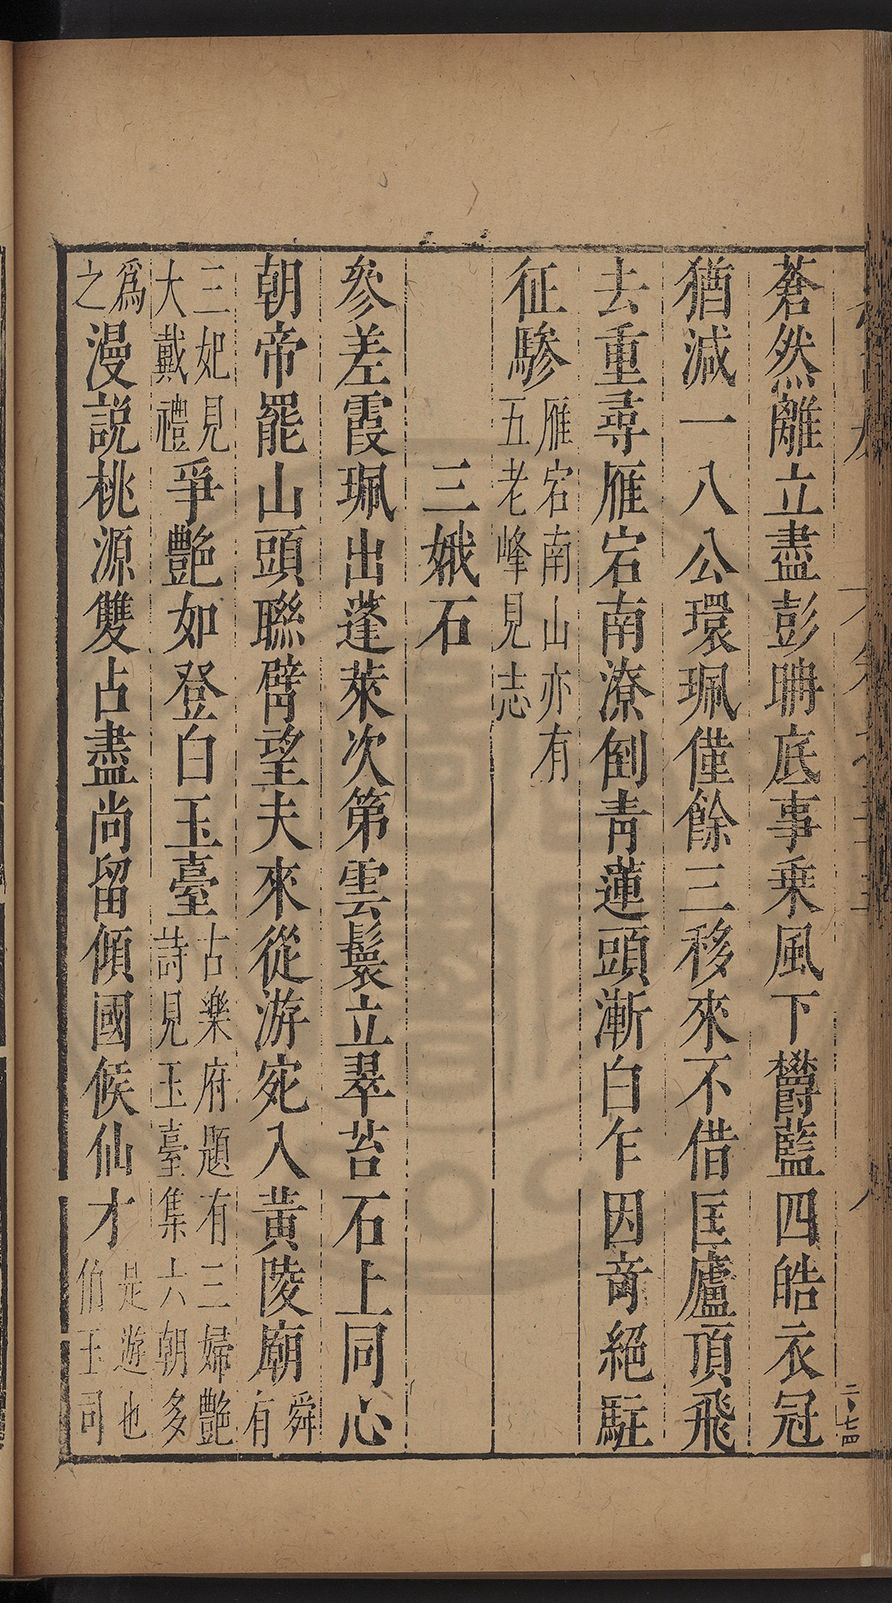 蒼然離立盡彭聃底事乗風下欝藍四皓衣冠
猶減一八公環珮僅餘三移來不借匡廬頂飛
去重尋雁宕南潦倒青蓮頭漸白乍因奇絕駐
征驂雁宕南山亦有五老峰見志
三娥石
參差霞珮出蓬萊次第雲鬟立翠苔石上同心
朝帝罷山頭聯臂望夫來從游宛入黄陵廟舜有
三妃見大戴禮爭艷如登白玉臺古樂府題有三婦艷詩見玉臺集六朝多
爲之漫説桃源雙占盡尚留傾國候仙才是遊也伯玉司
二七四